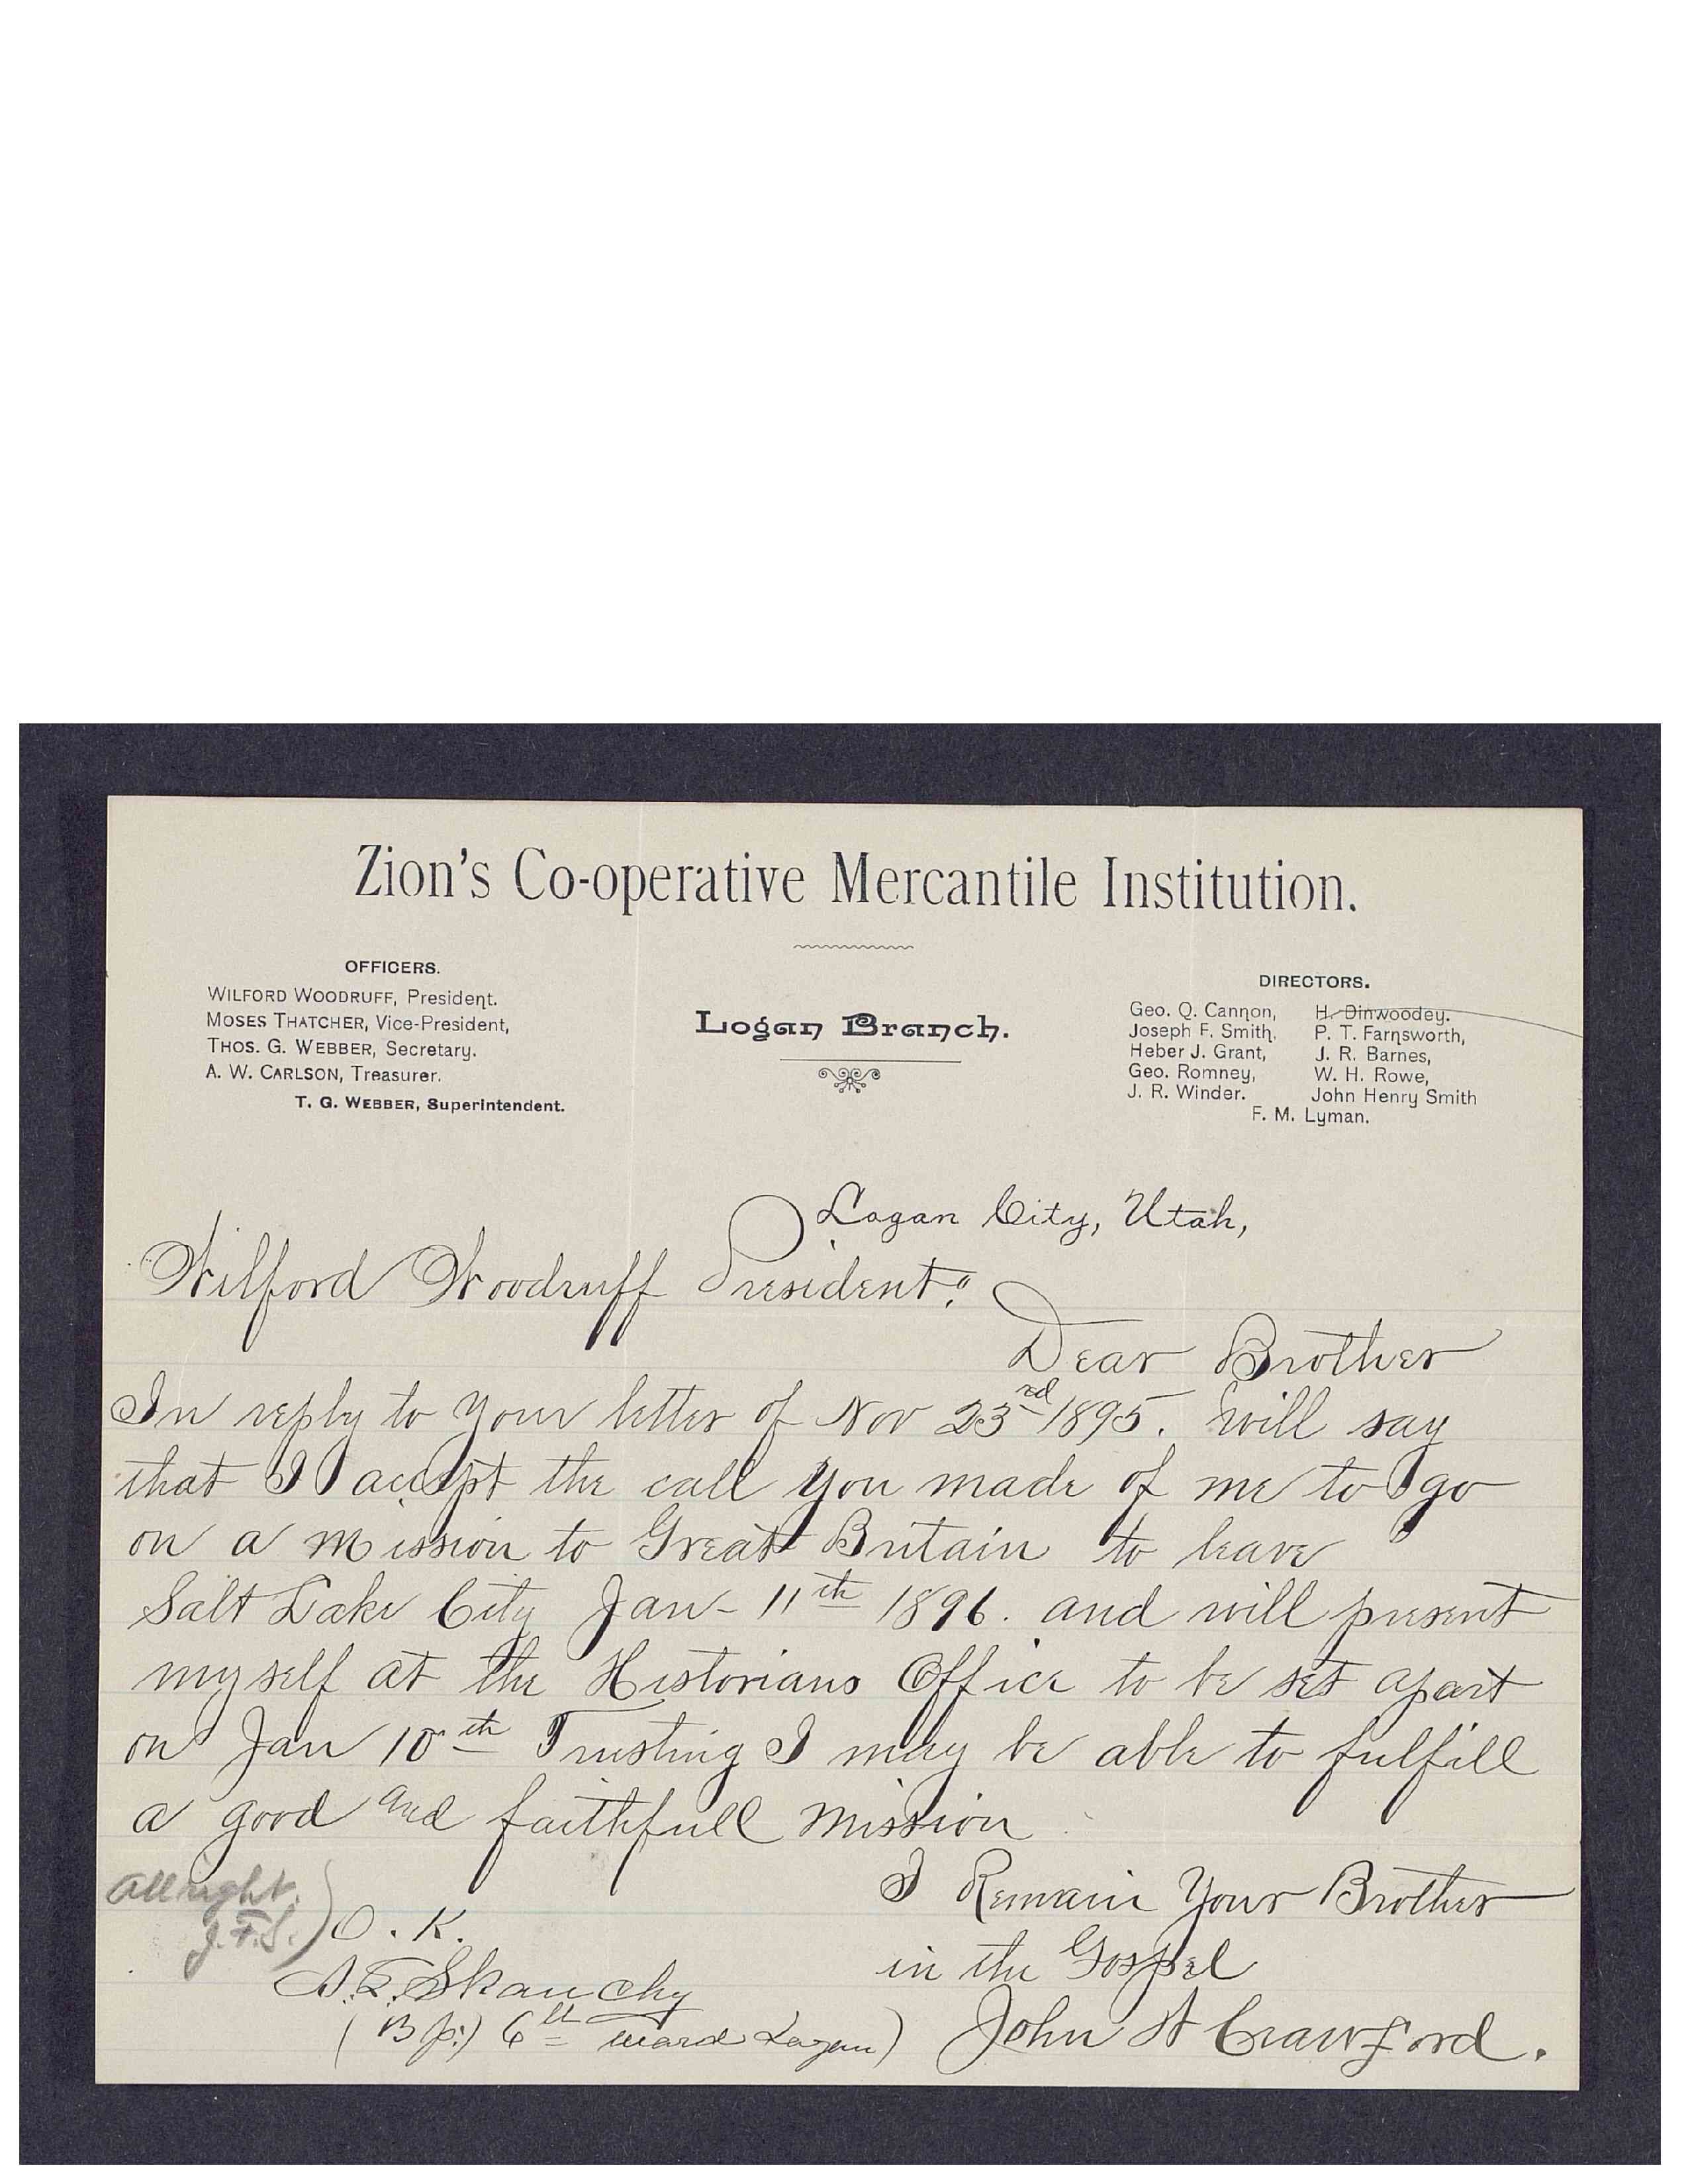 Zion's Co-operative Mercantile Institution.
OFFICERS.
WILFORD WOODRUFF, President.
MOSES THATCHER, Vice-President,
THOS. G. WEBBER, Secretary.
A. W. CARLSON, Treasurer.
T. G. WEBBER, Superintendent.
Logan Branch.
DIRECTORS.
Geo. Q. Cannon, H. Dinwoodey.
Joseph F. Smith, P. T. Farnsworth,
Heber J. Grant, J. R. Barnes,
Geo. Romney, W. H. Rowe,
J. R. Winder. John Henry Smith
F. M. Lyman.
Logan City, Utah,
Wilford Woodruff President.
Dear Brother
In reply to your letter of Nov 23rd 1895. Will say
that I accept the call you made of me to go
on a mission to Great Britain to leave
Salt Lake City Jan - 11th 1896. and will present
myself at the Historians Office to be set apart
on Jan 10th Trusting I may be able to fulfill
a good and faithfull mission
I Remain Your Brother
in the Gospel
John A Crawford.
All right.
J.F.S.)
O.K.
Skanchy
(Bp:) 6th ward Logan)